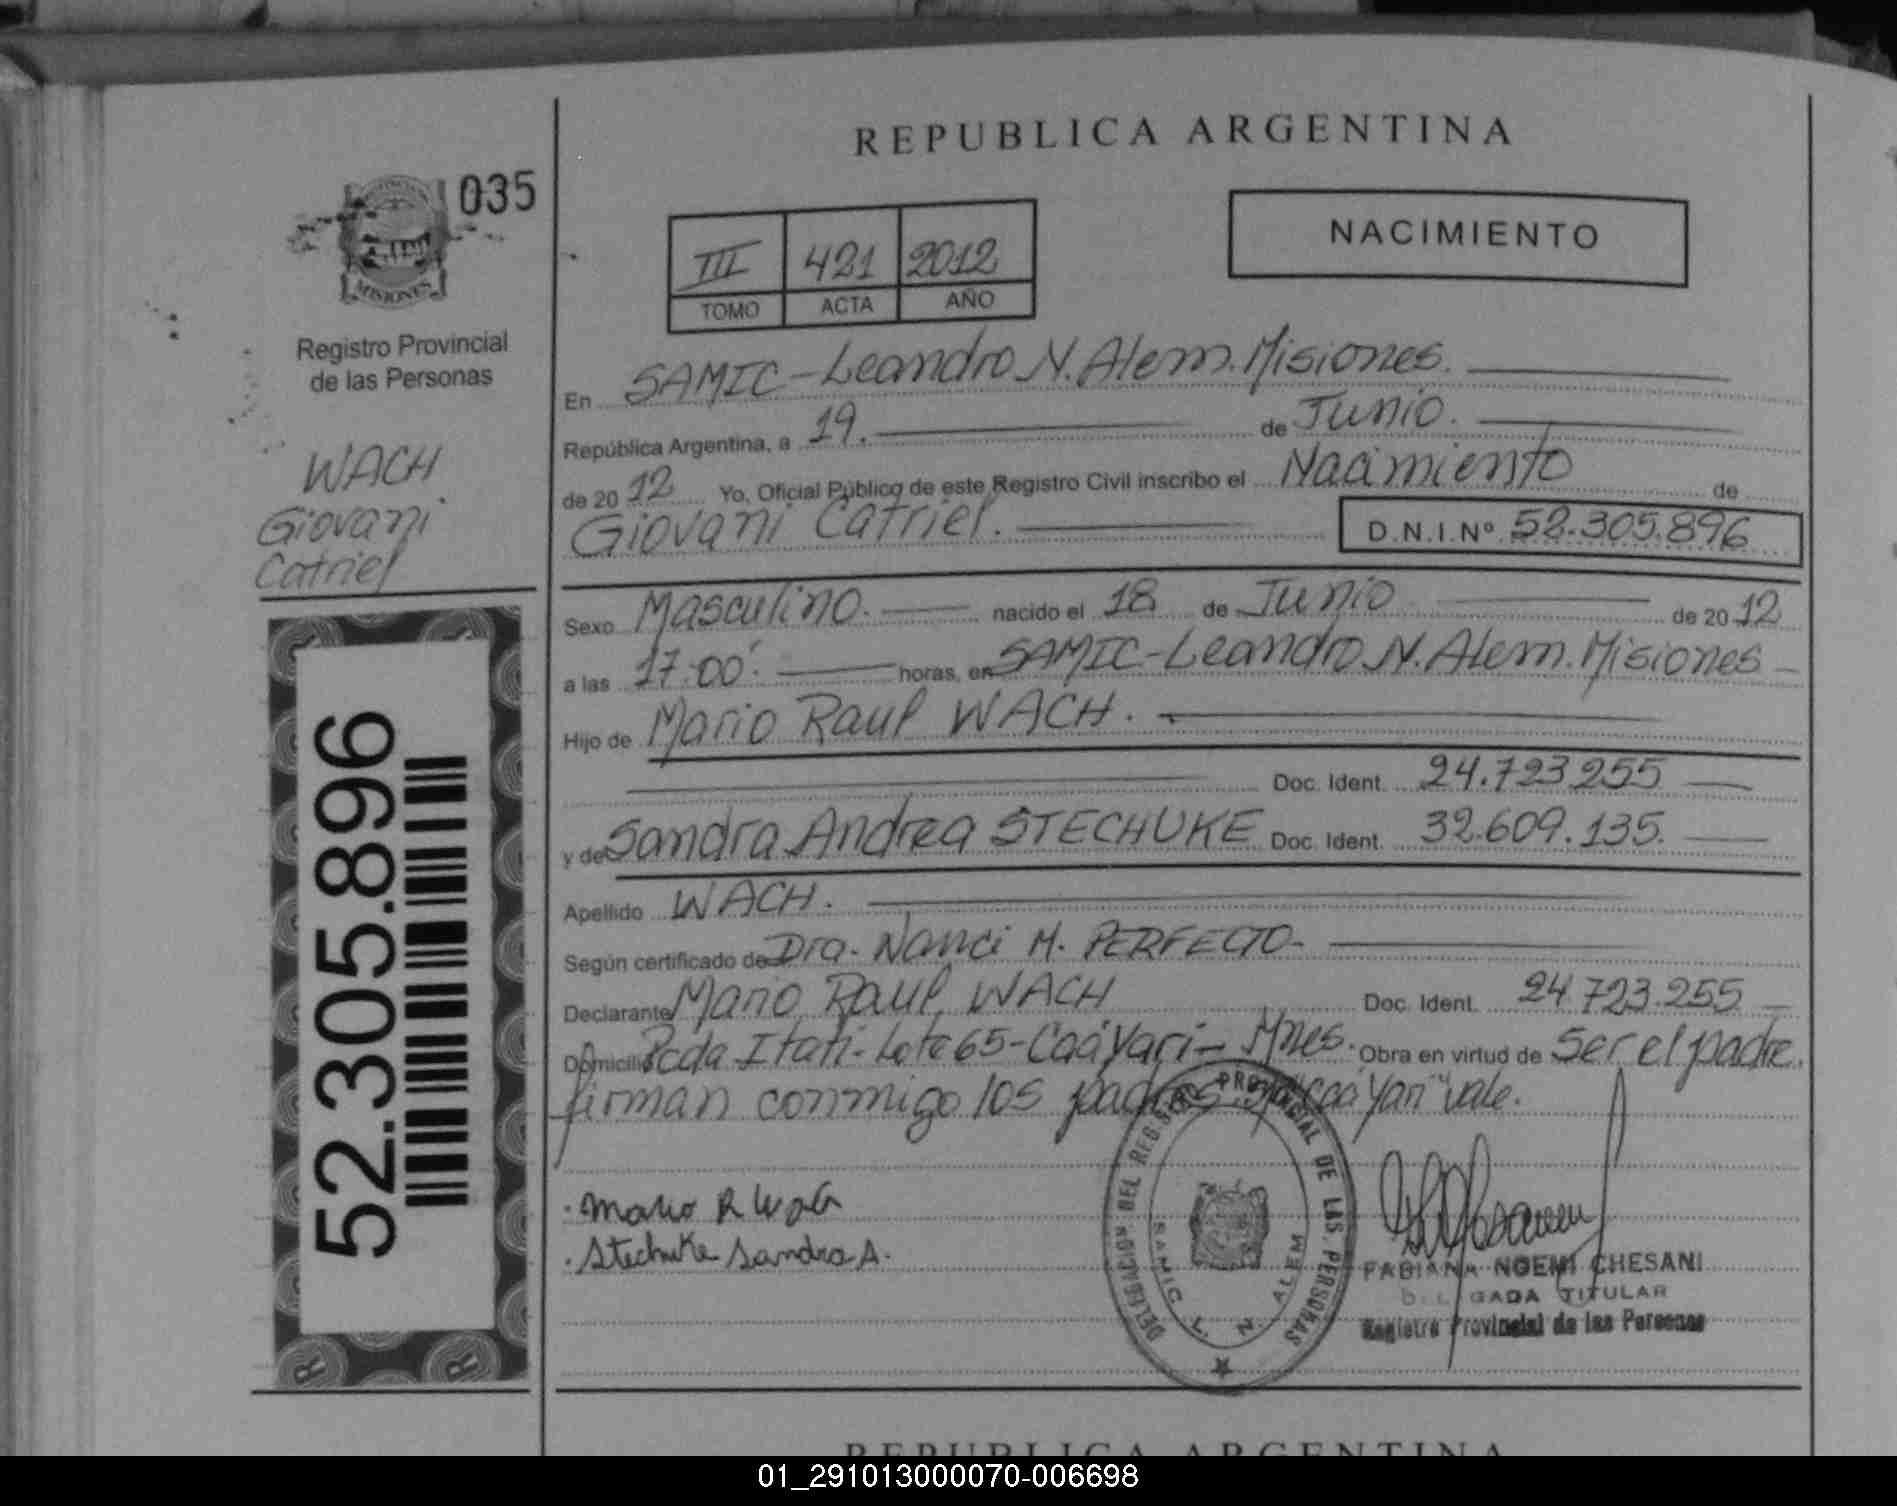 REPUBLICA ARGENTINA
035
MISIONES
Registro Provincial
de las Personas
WACH
Giovani
Catriel
52.305.896
III 421 2012
TOMO ACTA AÑO
NACIMIENTO
En SAMIC - Leandro N. Alem. Misiones.
República Argentina, a 19. de Junio.
de 2012 Yo, Oficial Público de este Registro Civil inscribo el Nacimiento de
Giovani Catriel. D.N.I.Nº 52.305.896
Sexo Masculino. nacido el 18 de Junio de 2012
a las 17:00'. horas, en SAMIC - Leandro N. Alem. Misiones
Hijo de Mario Raul WACH.
Doc. Ident. 24.723.255
y de Sandra Andrea STECHUKE Doc. Ident. 32.609.135.
Apellido WACH.
Según certificado de Dra. Nanci M. PERFECTO-
Declarante Mario Raul WACH Doc. Ident. 24.723.255
Domicilio Pcda Itati - Lote 65 - Caá Yari - Mnes. Obra en virtud de Ser el padre.
firman conmigo los padres. "Caá Yari" vale.
Mario R Wach
Stechuke Sandra A.
DELEGACION DEL REGISTRO PROVINCIAL DE LAS PERSONAS
SAMIC L. N. ALEM
FABIANA NOEMI CHESANI
DELEGADA TITULAR
Registro Provincial de las Personas
REPUBLICA ARGENTINA
01_291013000070-006698